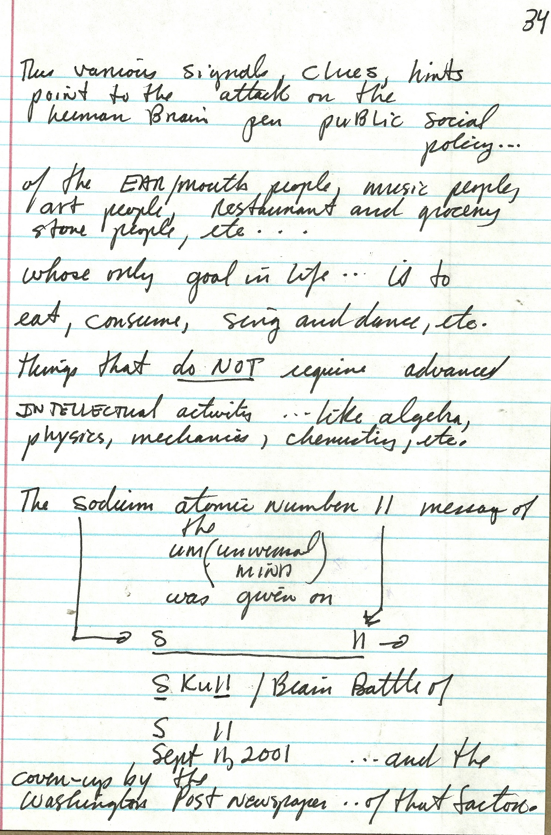 34
Thus various signals, clues, hints
point to the attack on the
human Brain per public social
policy...
of the EAR/mouth people, music people,
art people, restaurant and grocery
store people, etc...
whose only goal in life... is to
eat, consume, sing and dance, etc.
things that do NOT require advanced
INTELLECTUAL activity ...like algebra,
physics, mechanics, chemistry, etc.
The sodium atomic number 11 message of
the
um (universal
MIND)
was given on
S 11
S Ku11 / Brain Battle of
S 11
Sept 11, 2001 ...and the
cover-up by the
Washington Post Newspaper ..of that factor.